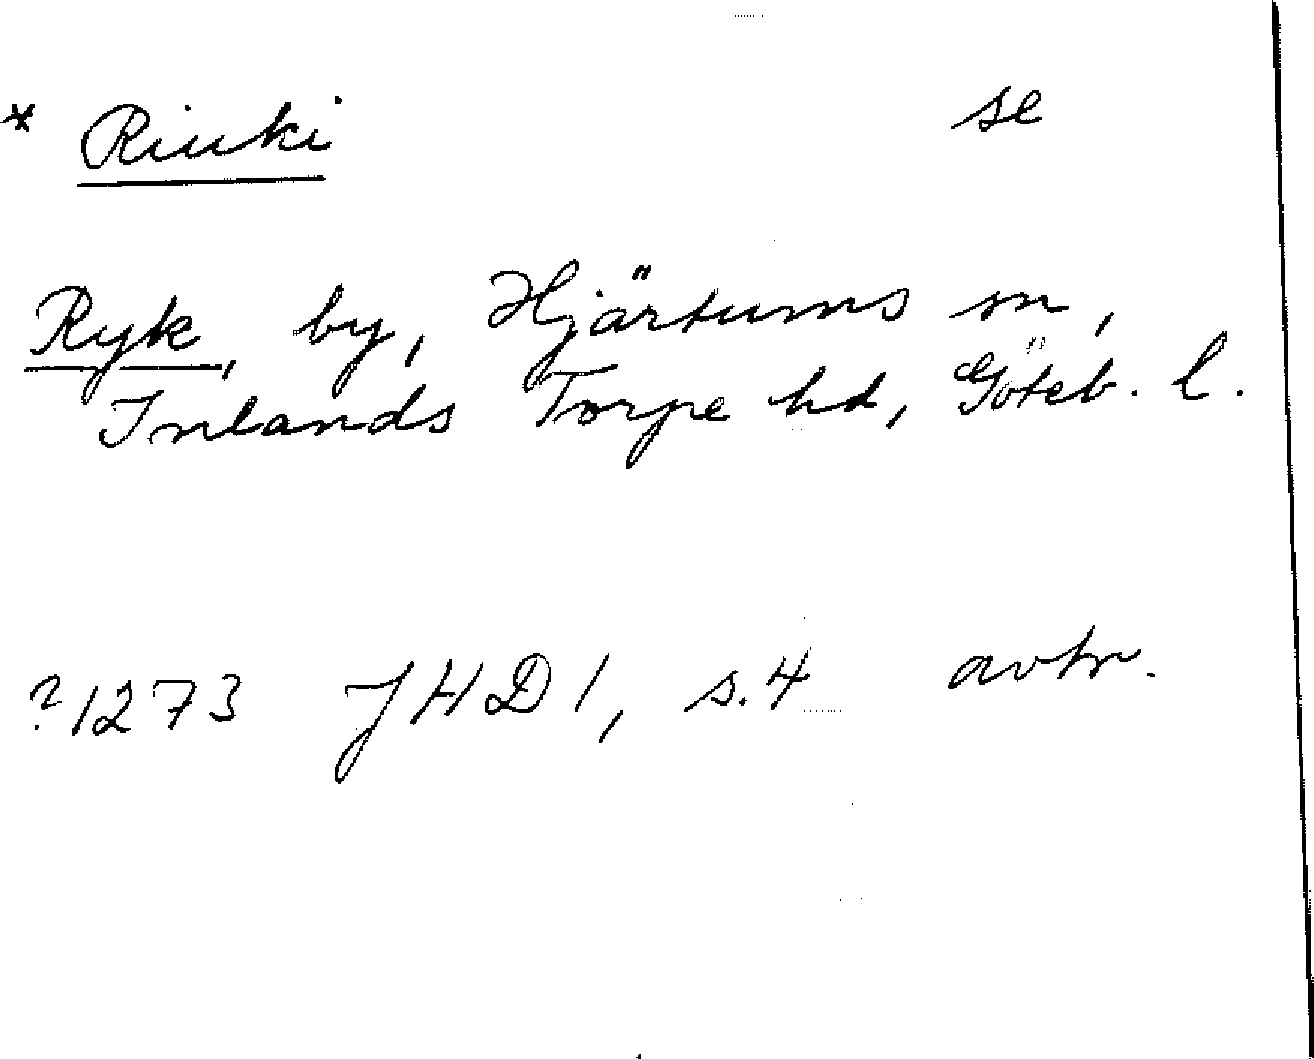 * Riuki se
Ryk, by, Hjärtums sn,
Inlands Torpe hd, Göteb. l.
?1273 JHD 1, s. 4 avtr.